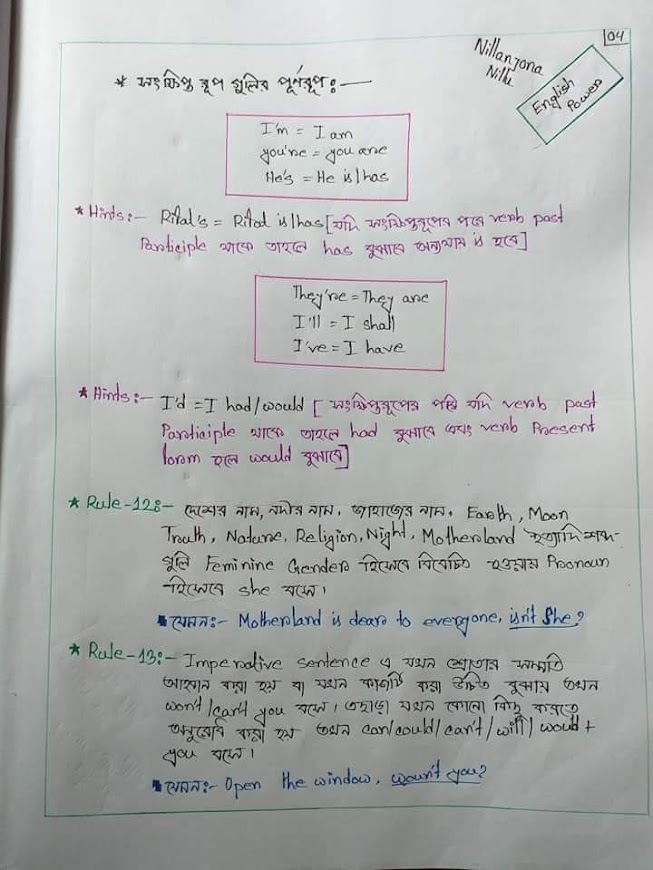 04
Nillanjona
Nillu
English
Power
* সংক্ষিপ্ত রূপ গুলির পূর্ণরূপ:—
I'm = I am
you're = you are
He's = He is/has
* Hints:- Rifal's = Rifal is/has [যদি সংক্ষিপ্তরূপের পরে verb past
Participle থাকে তাহলে has বুঝাবে অন্যথায় is হবে]
They're = They are
I'll = I shall
I've = I have
* Hints:- I'd = I had/would [সংক্ষিপ্তরূপের পর যদি verb past
Participle থাকে তাহলে had বুঝাবে এবং verb Present
form হলে would বুঝাবে]
* Rule-12:- দেশের নাম, নদীর নাম, জাহাজের নাম, Earth, Moon
Truth, Nature, Religion, Night, Motherland ইত্যাদি শব্দ-
গুলি Feminine Gender হিসেবে বিবেচিত হওয়ায় Pronoun
হিসেবে she বসে।
যেমন:- Motherland is dear to everyone, isn't she?
* Rule-13:- Imperative sentence এ যখন শ্রোতার সম্মতি
আহবান করা হয় বা যখন কাজটি করা উচিত বুঝায় তখন
won't/can't you বসে। তাছাড়া যখন কোনো কিছু করতে
অনুরোধ করা হয় তখন can/could/can't/will/would +
you বসে।
যেমন:- Open the window, woun't you?